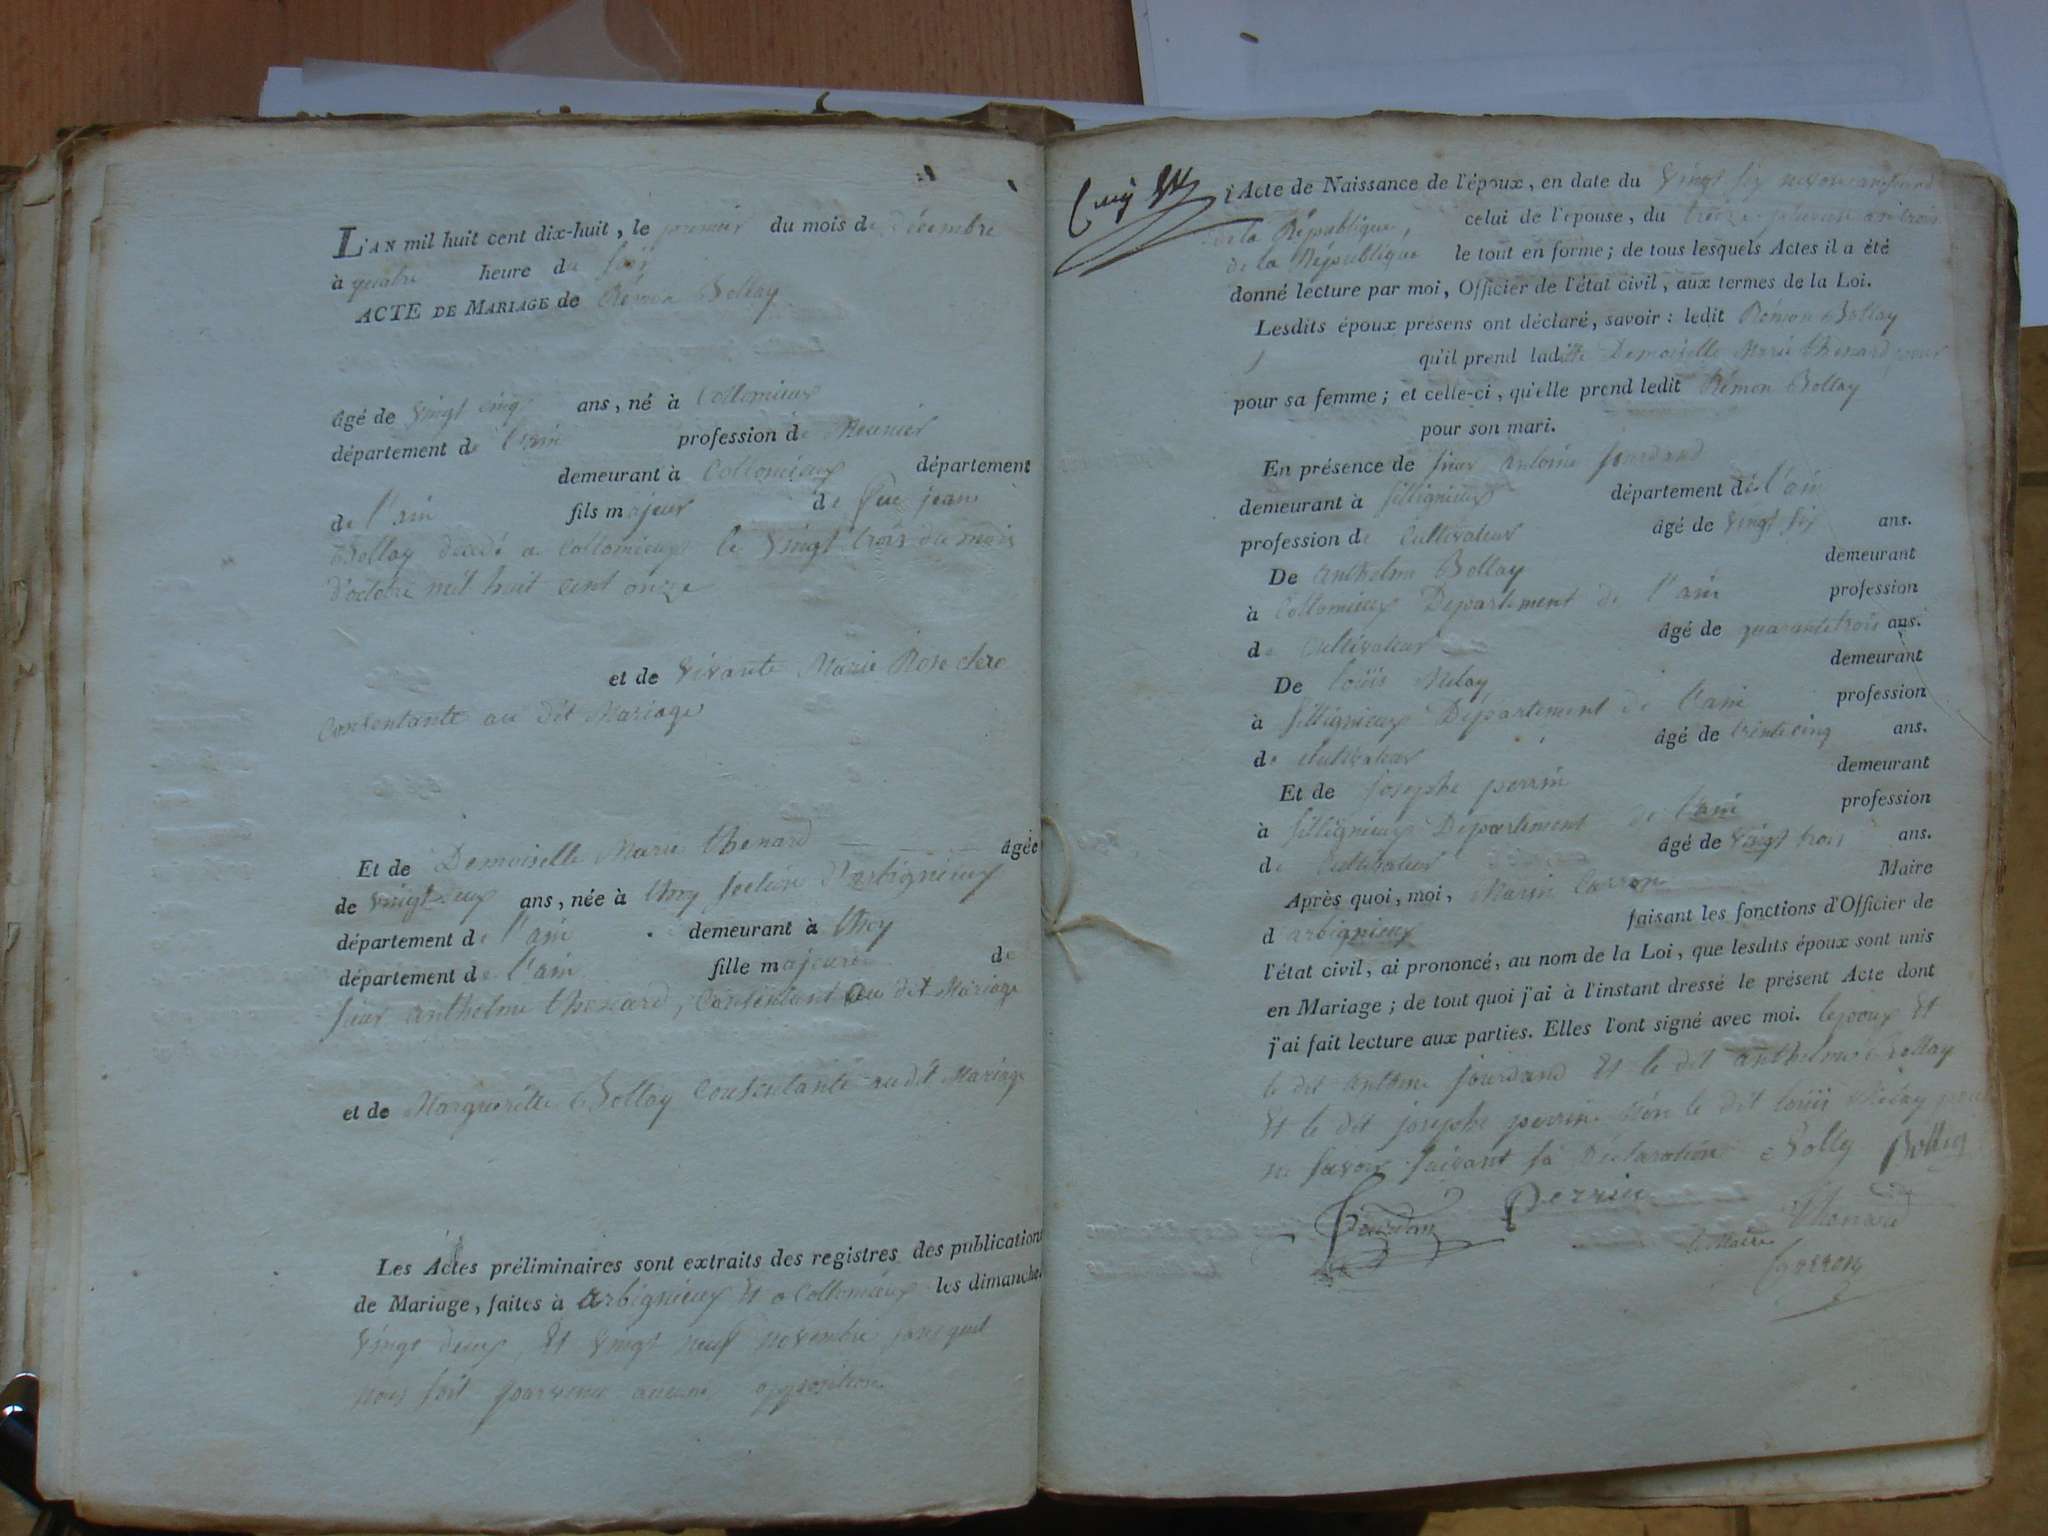 L'AN mil huit cent dix-huit, le premier du mois de décembre
à quatre heure du soir
ACTE DE MARIAGE de Rémon Bollay
âgé de vingt cinq ans, né à Collomieux
département de l'ain profession de Meunier
demeurant à Collomieux département
de l'ain fils majeur de feu jean
Bollay décédé a Collomieux le vingt trois du mois
d'octobre mil huit cent onze
et de vivante Marie Rose clerc
Consentante au dit Mariage
Et de Demoiselle Marie thenard âgée
de vingt deux ans, née à thoy section d'arbignieux
département de l'ain demeurant à thoy
département de l'ain fille majeure de
sieur anthelme thenard, Consentant au dit Mariage
et de Margueritte Bollay Consentante au dit Mariage
Les Actes préliminaires sont extraits des registres des publications
de Mariage, faites à arbignieux Et a Collomieux les dimanches
vingt deux Et vingt neuf novembre sans quil
nous soit parvenu aucune opposition
l'Acte de Naissance de l'époux, en date du vingt six
de la République, celui de l'épouse, du treize pluviose an trois
de la République le tout en forme; de tous lesquels Actes il a été
donné lecture par moi, Officier de l'état civil, aux termes de la Loi.
Lesdits époux présens ont déclaré, savoir: ledit Rémon Bollay
qu'il prend laditte Demoiselle Marie thenard pour
pour sa femme; et celle-ci, qu'elle prend ledit Rémon Bollay
pour son mari.
En présence de sieur Antoine jourdand
demeurant à sillignieux département de l'ain
profession de Cultivateur âgé de vingt six ans.
De anthelme Bollay demeurant
à Collomieux Departement de l'ain profession
de Cultivateur âgé de quarante trois ans.
De louïs Milay demeurant
à sillignieux Departement de l'ain profession
de Cultivateur âgé de trente cinq ans.
Et de josephe perrin demeurant
à sillignieux Departement de l'ain profession
de Cultivateur âgé de vingt trois ans.
Après quoi, moi, Marin Carron Maire
d arbignieux faisant les fonctions d'Officier de
l'état civil, ai prononcé, au nom de la Loi, que lesdits époux sont unis
en Mariage; de tout quoi j'ai à l'instant dressé le présent Acte dont
j'ai fait lecture aux parties. Elles l'ont signé avec moi. lepoux Et
le dit antoine jourdand Et le dit anthelme Bollay
Et le dit josephe perrin non le dit louïs Milay pour
ne savoir suivant sa Déclaration Bolly Bollay
Jourdan Perrin Thenard
le Maire
Carron